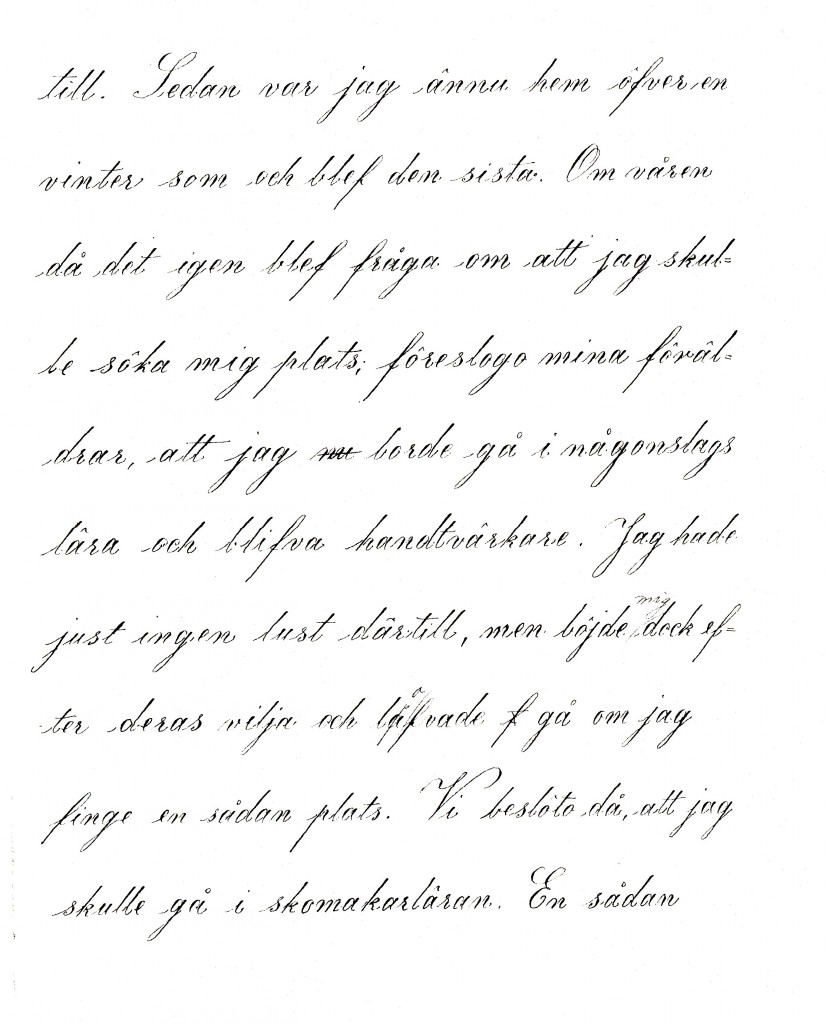 till. Sedan var jag ännu hem öfver en
vinter som och blef den sista. Om våren
då det igen blef fråga om att jag skul=
le söka mig plats, föreslogo mina föräl=
drar, att jag nu borde gå i någonslags
lära och blifva handtvärkare. Jag hade
just ingen lust därtill, men böjde mig dock ef=
ter deras vilja och löfvade f gå om jag
finge en sådan plats. Vi beslöto då, att jag
skulle gå i skomakarläran. En sådan